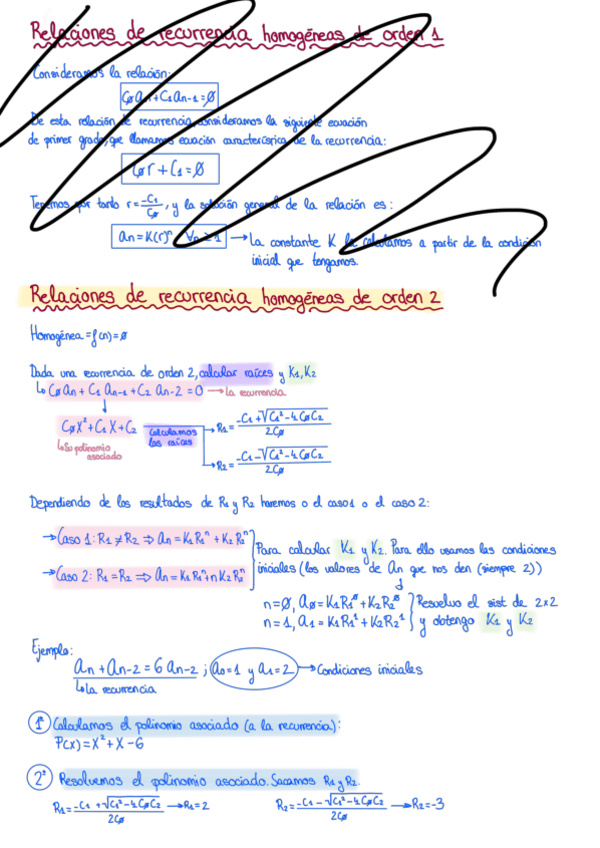 Relaciones de recurrencia homogéneas de orden 1
Consideramos la relación:
C∅an+C1an-1=∅
De esta relación de recurrencia, consideramos la siguiente ecuación
de primer grado, que llamamos ecuación característica de la recurrencia:
C∅r+C1=∅
Tenemos por tanto r=-C1/C∅, y la solución general de la relación es:
an=K(r)ⁿ, ∀n≥1 → La constante K la calculamos a partir de la condición
inicial que tengamos.
Relaciones de recurrencia homogéneas de orden 2
Homogénea = f(n)=∅
Dada una recurrencia de orden 2, calcular raíces y K1, K2
↳ C∅an + C1 an-1 + C2 an-2 = 0 → La recurrencia
↓
C∅X²+C1X+C2 Calculamos las raíces → R1= -C1+√C1²-4C∅C2 / 2C∅
↳ Su polinomio asociado
→ R2= -C1-√C1²-4C∅C2 / 2C∅
Dependiendo de los resultados de R1 y R2 haremos o el caso 1 o el caso 2:
→ Caso 1: R1≠R2 ⇒ an=K1R1ⁿ+K2R2ⁿ
→ Caso 2: R1=R2 ⇒ an=K1R1ⁿ+nK2R2ⁿ
Para calcular K1 y K2. Para ello usamos las condiciones
iniciales (los valores de an que nos den (siempre 2))
↓
n=∅, a∅=K1R1^∅+K2R2^∅ Resuelvo el sist de 2x2
n=1, a1=K1R1¹+K2R2¹ y obtengo K1 y K2
Ejemplo:
an+an-2=6an-2; a0=1 y a1=2 → Condiciones iniciales
↳ La recurrencia
1º Calculamos el polinomio asociado (a la recurrencia):
P(x)=X²+X-6
2º Resolvemos el polinomio asociado. Sacamos R1 y R2.
R1= -C1+√C1²-4C∅C2 / 2C∅ → R1=2 R2= -C1-√C1²-4C∅C2 / 2C∅ → R2=-3